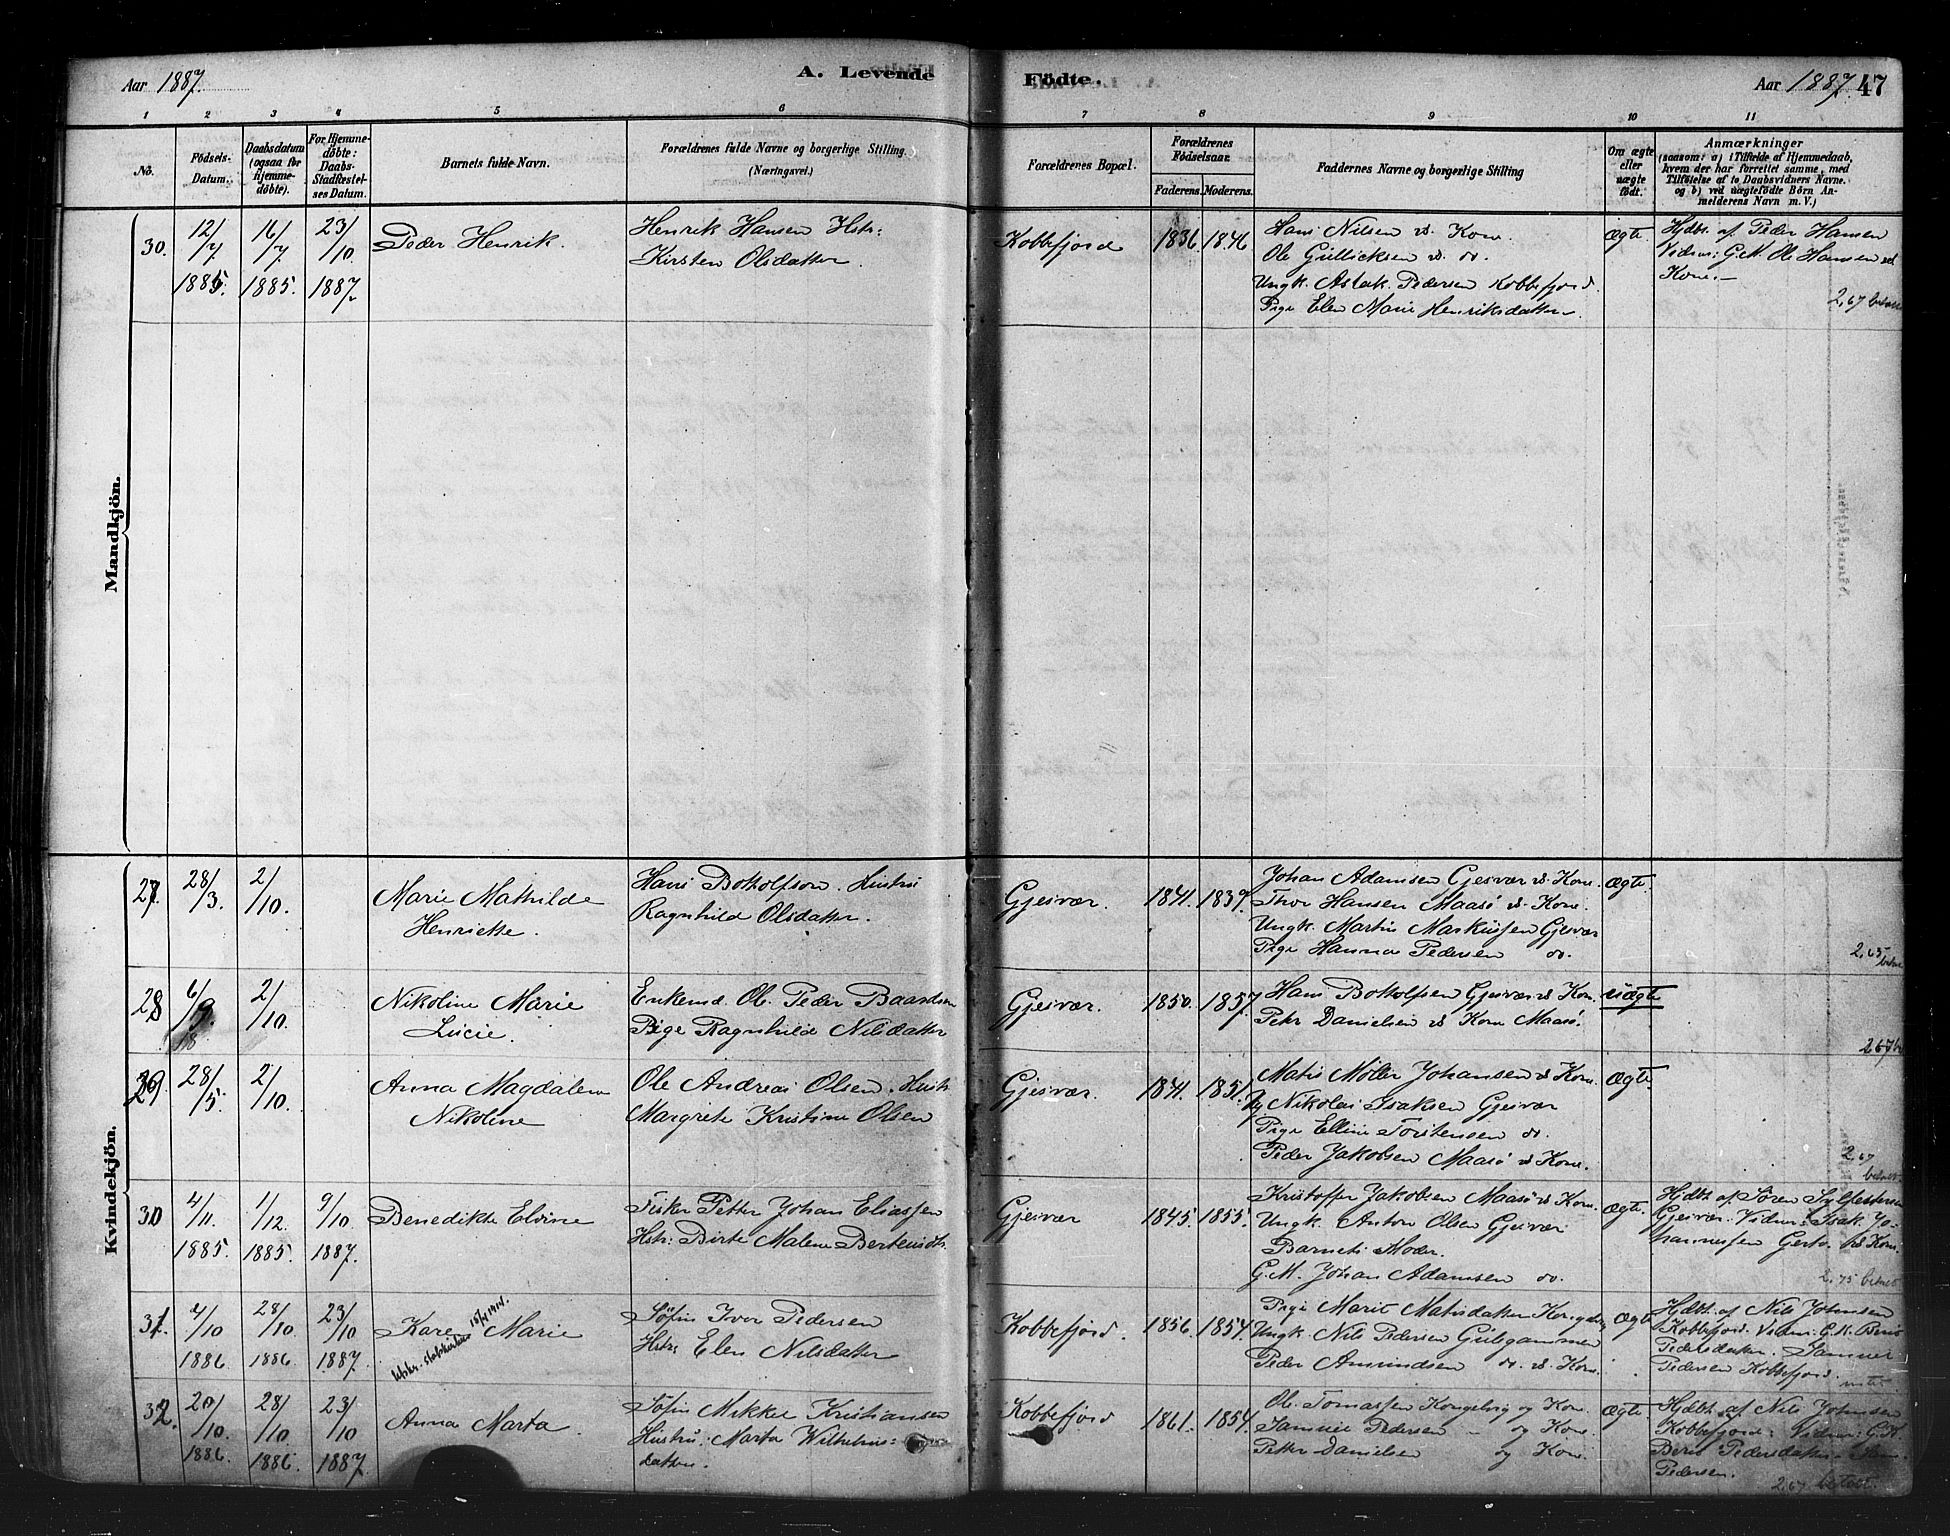 Aar 1887.
A. Levende
Födte.
Aar 1887.
47
1 2 3 4 5 6 7 8 9 10 11
No.
Födsels-
Datum.
Daabsdatum
(ogsaa for
hjemme-
döbte).
For Hjemme-
döbte:
Daabs-
Stadfæstel-
ses Datum.
Barnets fulde Navn.
Forældrenes fulde Navne og borgerlige Stilling.
(Næringsvei.)
Forældrenes Bopæl.
Forældrenes
Födselsaar.
Faderens. Moderens.
Faddernes Navne og borgerlige Stilling
Om ægte
eller
uægte
födt.
Anmærkninger
(saasom: a) i Tilfælde af Hjemmedaab,
hvem der har forrettet samme, med
Tilföielse af to Daabsvidners Navne.
og b) ved uægtefödte Börn An-
melderens Navn m. V.)
Mandkjön.
30.
12/7
1885.
16/7
1885.
23/10
1887
Peder Henrik.
Henrik Hansen Hstr:
Kirsten Olsdatter.
Kobbefjord
1836 1846
Hans Nilsen & Kone.
Ole Gullicksen & do.
Ungk. Aslak Pedersen Kobbefjord.
Pige Elen Marie Henriksdatter
ægte
Hjdbt. af Peder Hansen
Vidner: G.M. Ole Hansen &
Kone.
2,67 betalt
Kvindekjön.
27.
28/3.
2/10.
Marie Mathilde
Henriette.
Hans Botolfson. Hustru
Ragnhild Olsdatter.
Gjesvær.
1841. 1839.
Johan Adamsen Gjesvær & Kone.
Thor Hansen Maasö & Kone.
Ungk. Martin Markussen Gjesvær
Pige Hanna Pedersen do.
Ægte.
2,65 betalt
28
6/9.
2/10.
Nikoline Marie
Lucie.
Enkemd. Ole Peder Baardsen
Pige Ragnhild Nilsdatter
Gjesvær.
1850. 1857.
Hans Botolfsen Gjesvær & Kone.
Petr Danielsen & Kone Maasö.
Uægte
2,67
29.
28/5.
2/10.
Anna Magdalena
Nikoline
Ole Andreas Olsen. Hustr.
Margrete Kristine Olsen
Gjesvær.
1841. 1851.
Matis Møller Johansen & Kone.
Ug Nikolai Isaksen Gjesvær
Pige Elline Torstensen do.
Peder Jakobsen Maasö & Kone.
Ægte.
2,67
betalt.
30
4/11.
1885.
1/12.
1885.
9/10
1887.
Benedikte Elvine
Fisker Petter Johan Eliassen
Hstr: Birte Malene Berteusdtr.
Gjesvær
1845. 1855.
Kristoffer Jakobsen Maasö & Kone.
Ungk. Anton Olsen Gjesvær
Barnets Moder.
G.M. Johan Adamsen do.
Ægte.
Hjdbt. af Søren Sylfestersen
Gjesvær. Vidner: Isak Jo-
hannessen Gjesv. & Kone.
2,75 betalt
31.
7/10
1886
28/10
1886.
23/10
1887.
Karen Marie
15/4 1914.
Søfin Iver Pedersen
Hstr: Elen Nilsdatter
Kobbefjord.
1856. 1857.
Pige Marit Matisdatter
Ungk. Nils Pedersen Gulgammen
Peder Amundsen do. & Kone.
Ægte
Hjdbt. af Nils Johnsen
Kobbefjord. Vidner: G.K. Berit
Pedersdatter. Samuel
Pedersen Kobbefjord.
32.
20/10
1886.
28/10
1886.
23/10
1887.
Anna Marta.
Søfin Mikkel Kristiansen
Hustru: Marta Wilhelms-
datter.
Kobbefjord
1861. 1854.
Ole Tomassen Kongelvig og Kone.
Samuel Pedersen og Kone.
Petter Danielsen og Kone.
Ægte.
Hjdbt. af Nils Johnsen
Kobbefjord. Vidner: G.K.
Berit Pedersdatter. Sam.
Pedersen.
2,67 betalt.